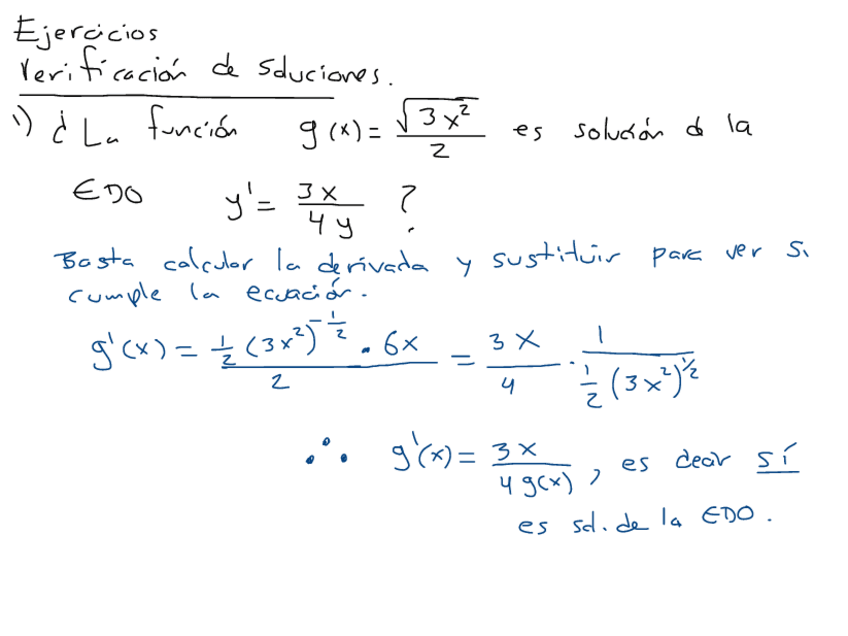 Ejercicios
Verificación de soluciones.
1) ¿La función g(x) = √(3x²)/2 es solución d la
EDO y' = 3x/4y ?
Basta calcular la derivada y sustituir para ver si
cumple la ecuación.
g'(x) = (1/2 (3x²)^(-1/2) · 6x)/2 = 3x/4 · 1/(1/2 (3x²)^(1/2))
∴ g'(x) = 3x/(4g(x)), es decir sí
es sol. de la EDO.